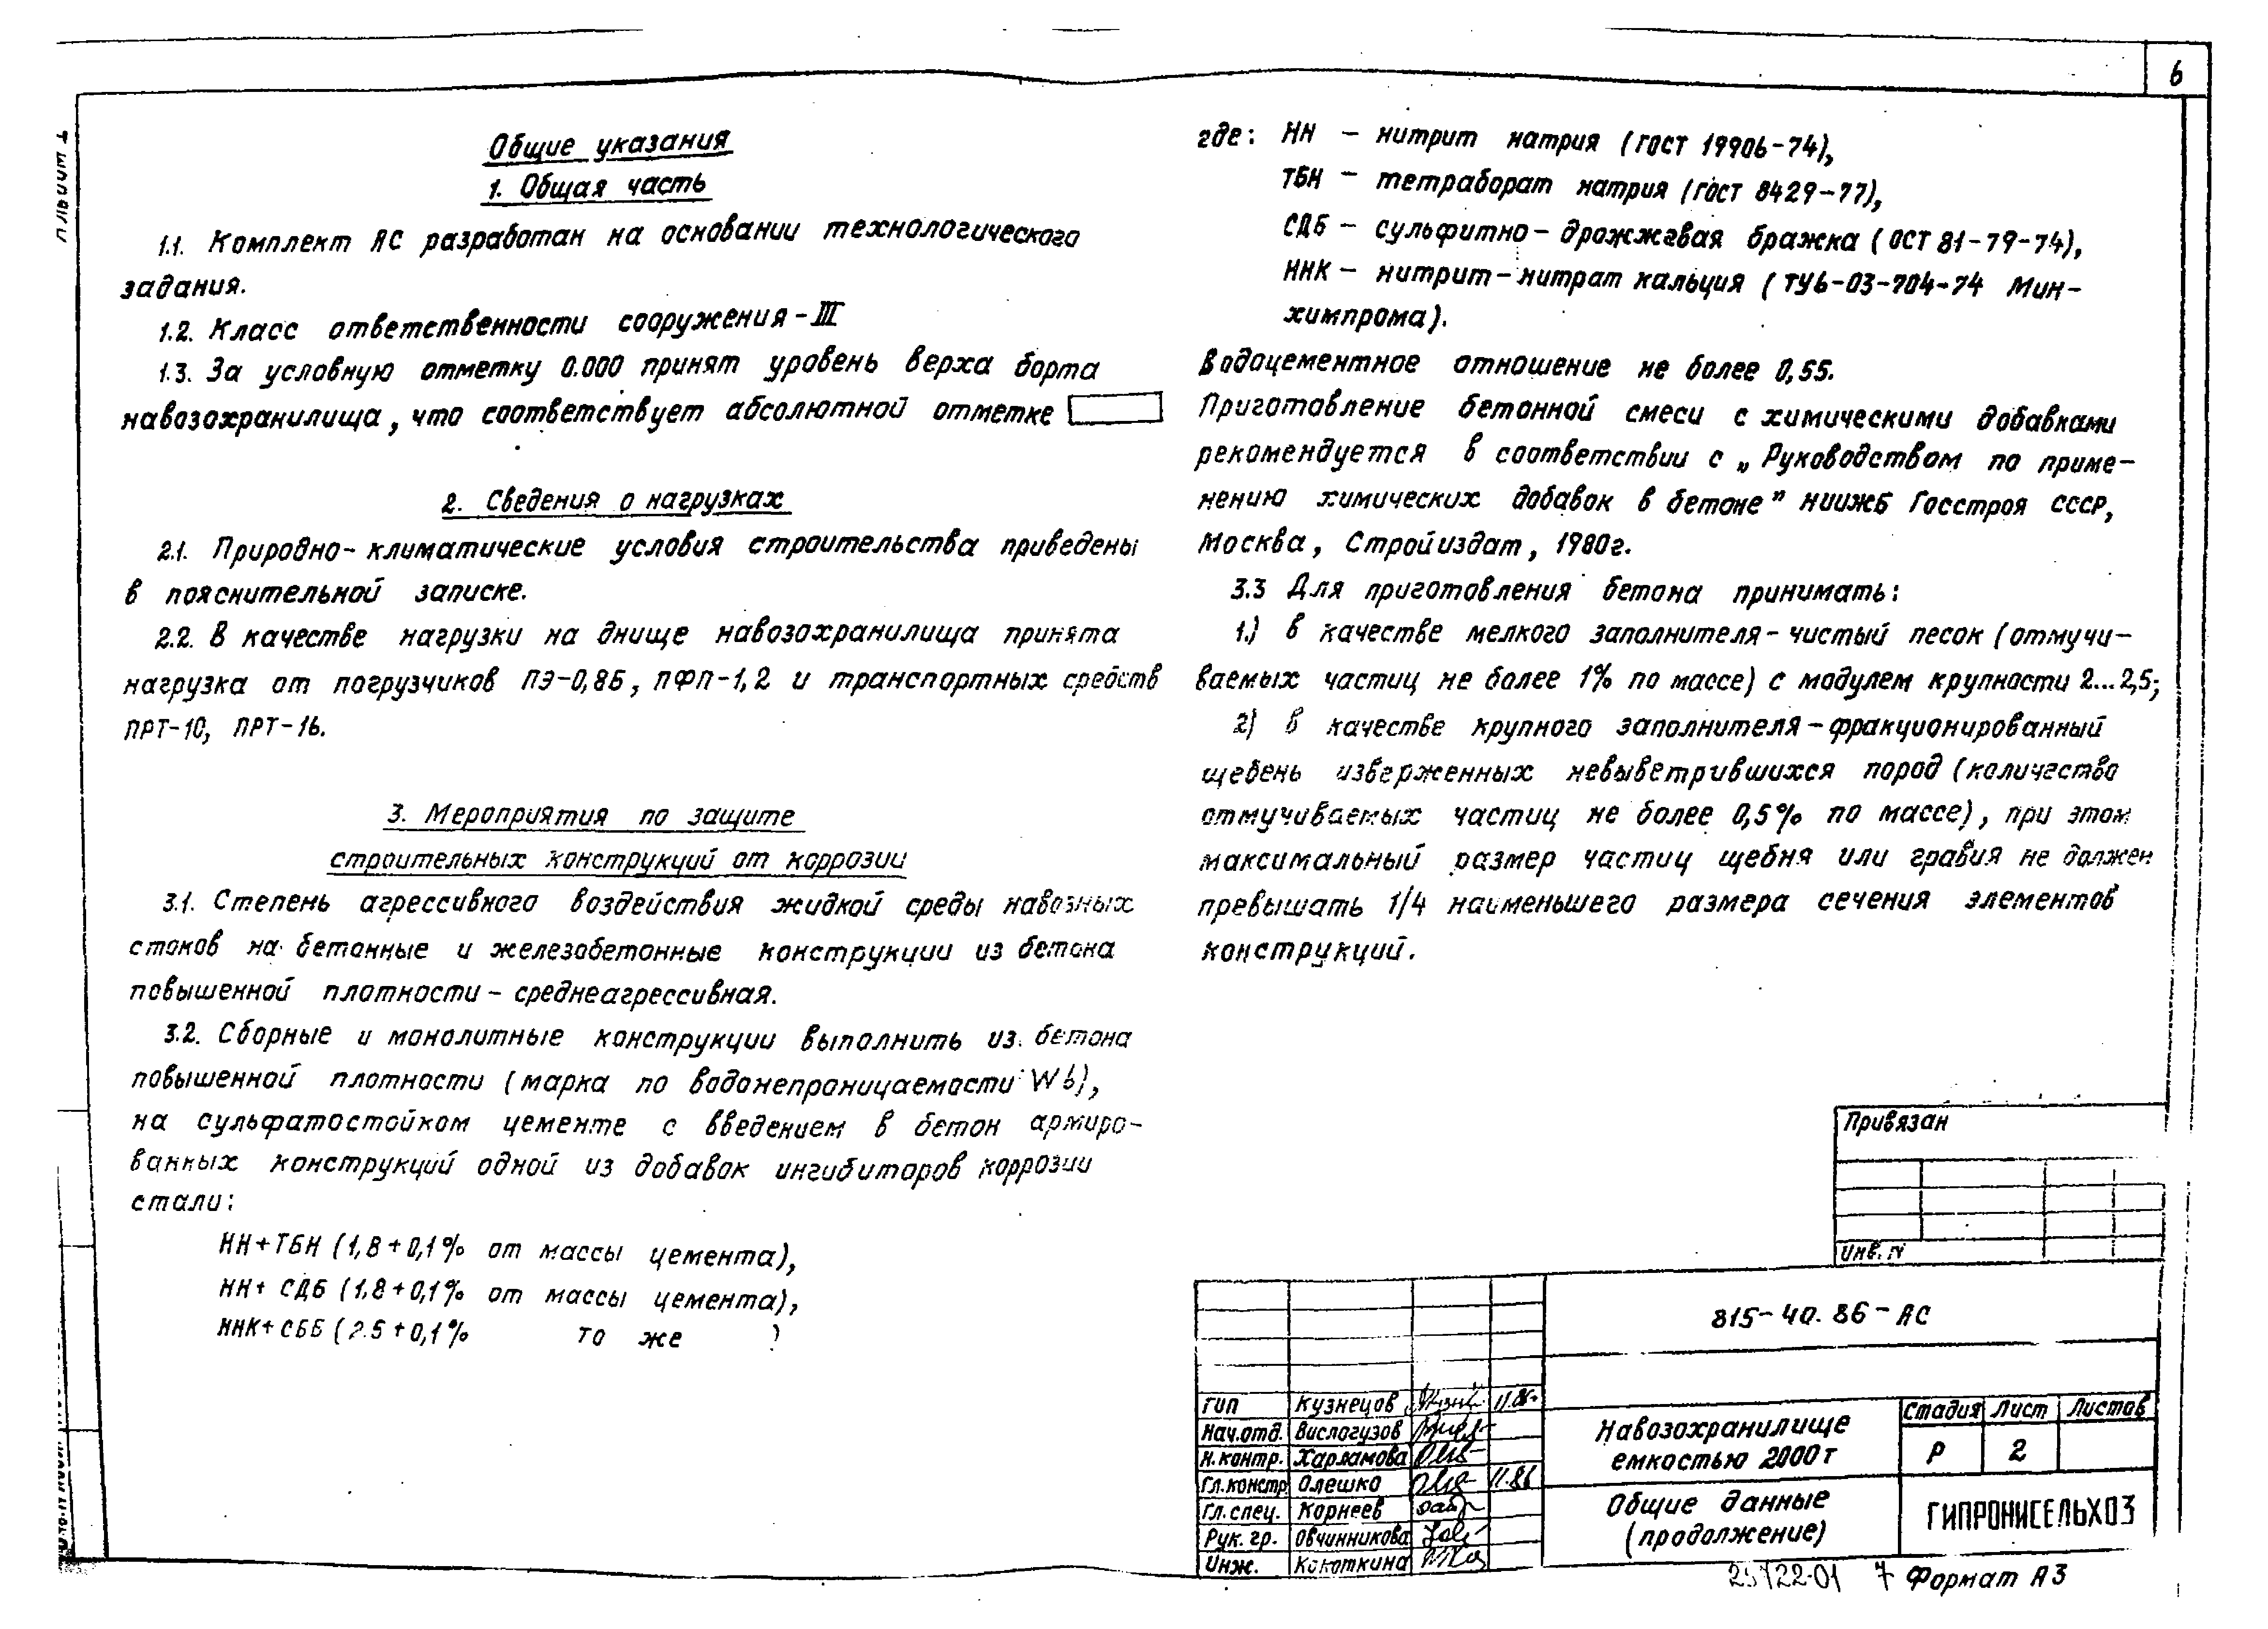 6
Альбом 1
Общие указания
1. Общая часть
1.1. Комплект АС разработан на основании технологического
задания.
1.2. Класс ответственности сооружения - III
1.3. За условную отметку 0.000 принят уровень верха борта
навозохранилища, что соответствует абсолютной отметке
2. Сведения о нагрузках
2.1. Природно-климатические условия строительства приведены
в пояснительной записке.
2.2. В качестве нагрузки на днище навозохранилища принята
нагрузка от погрузчиков ПЭ-0,8Б, ПФП-1,2 и транспортных средств
ПРТ-10, ПРТ-16.
3. Мероприятия по защите
строительных конструкций от коррозии
3.1. Степень агрессивного воздействия жидкой среды навозных
стоков на бетонные и железобетонные конструкции из бетона
повышенной плотности - среднеагрессивная.
3.2. Сборные и монолитные конструкции выполнить из бетона
повышенной плотности (марка по водонепроницаемости W6),
на сульфатостойком цементе с введением в бетон армиро-
ванных конструкций одной из добавок ингибиторов коррозии
стали:
НН+ТБН (1,8+0,1% от массы цемента),
НН+ СДБ (1,8+0,1% от массы цемента),
ННК+СББ (2.5+0,1% то же )
где: НН - нитрит натрия (ГОСТ 19906-74),
ТБН - тетраборат натрия (ГОСТ 8429-77),
СДБ - сульфитно-дрожжевая бражка (ОСТ 81-79-74),
ННК - нитрит-нитрат кальция (ТУ6-03-704-74 Мин-
химпрома).
Водоцементное отношение не более 0,55.
Приготовление бетонной смеси с химическими добавками
рекомендуется в соответствии с „Руководством по приме-
нению химических добавок в бетоне" НИИЖБ Госстроя СССР,
Москва, Стройиздат, 1980г.
3.3 Для приготовления бетона принимать:
1.) в качестве мелкого заполнителя-чистый песок (отмучи-
ваемых частиц не более 1% по массе) с модулем крупности 2...2,5;
2) в качестве крупного заполнителя-фракционированный
щебень изверженных невыветрившихся пород (количество
отмучиваемых частиц не более 0,5% по массе), при этом
максимальный размер частиц щебня или гравия не должен
превышать 1/4 наименьшего размера сечения элементов
конструкций.
Привязан
Инв. N
815-40.86-АС
ГИП Кузнецов 11.86
Нач.отд. Вислогузов
Н.контр. Харламова
Гл.констр Олешко 11.86
Гл.спец. Корнеев
Рук.гр. Овчинникова
Инж. Кокоткина
Навозохранилище
емкостью 2000т
Стадия Лист Листов
Р 2
Общие данные
(продолжение)
ГИПРОНИСЕЛЬХОЗ
7 Формат А3